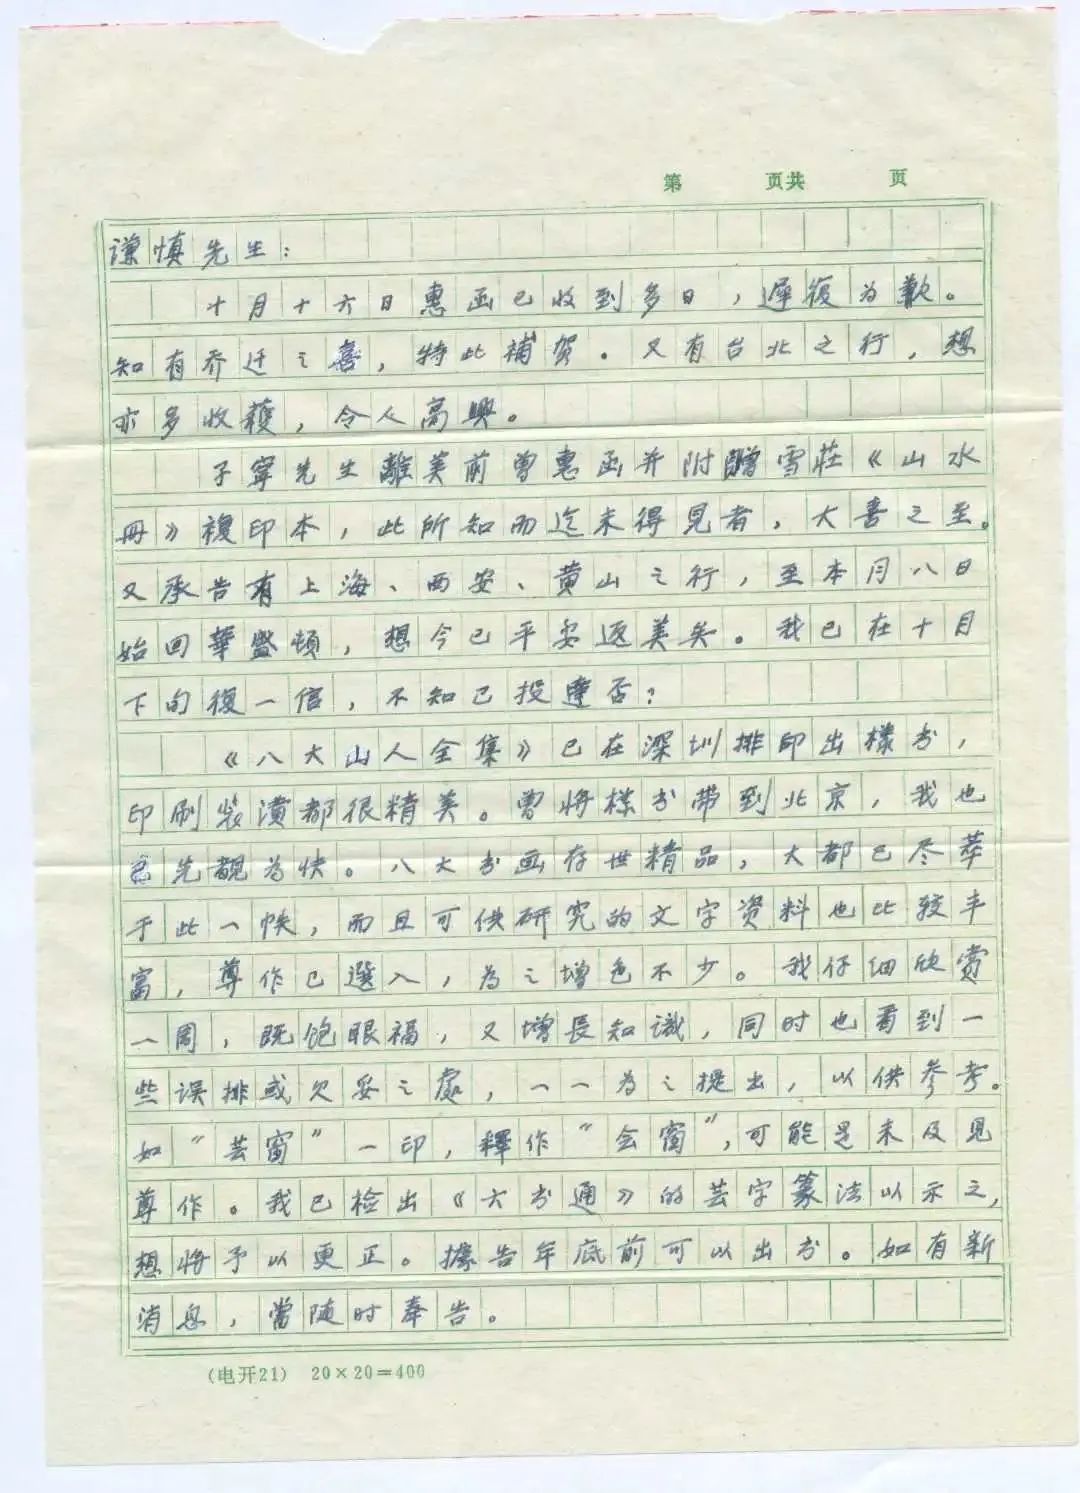 第 页共 页
谦慎先生：
十月十六日惠函已收到多日，遲復为歉。
知有乔迁之喜，特此補贺。又有台北之行，想
亦多收穫，令人高興。
子寧先生離美前曾惠函并附贈雪莊《山水
冊》複印本，此所知而迄未得見者，大喜之至。
又承告有上海、西安、黄山之行，至本月八日
始回華盛頓，想今已平安返美矣。我已在十月
下旬復一信，不知已投達否？
《八大山人全集》已在深圳排印出樣书，
印刷装潢都很精美。曾将樣书带到北京，我也
已先覩为快。八大书画存世精品，大都已尽萃
于此一帙，而且可供研究的文字资料也比较丰
富，尊作已選入，為之增色不少。我仔细欣赏
一周，既饱眼福，又增長知識，同时也看到一
些误排或欠妥之處，一一为之提出，以供参考。
如“芸窗”一印，釋作“会窗”，可能是未及見
尊作。我已检出《六书通》的芸字篆法以示之，
想将予以更正。據告年底前可以出书。如有新
消息，當随时奉告。
(电开21) 20×20=400